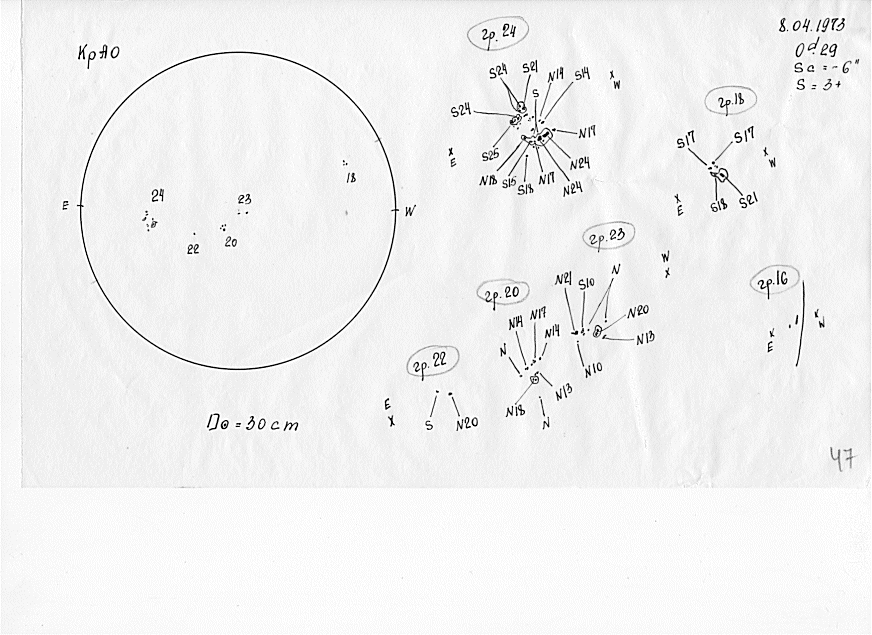 КрАО
8.04.1973
0ᵈ.29
Sc = -6"
S = 3+
E
W
24
23
22
20
18
D⊙ = 30cm
гр. 24
S24
S21
N14
S14
S
S24
N17
S25
N18
S15
S18
N17
N24
N24
x
E
x
W
гр.18
S17
S17
S18
S21
x
E
x
W
гр.23
N21
S10
N
N20
N13
N10
W
x
гр.20
N14
N17
N14
N
N18
N13
N
гр. 22
S
N20
E
x
гр.16
x
E
x
W
47